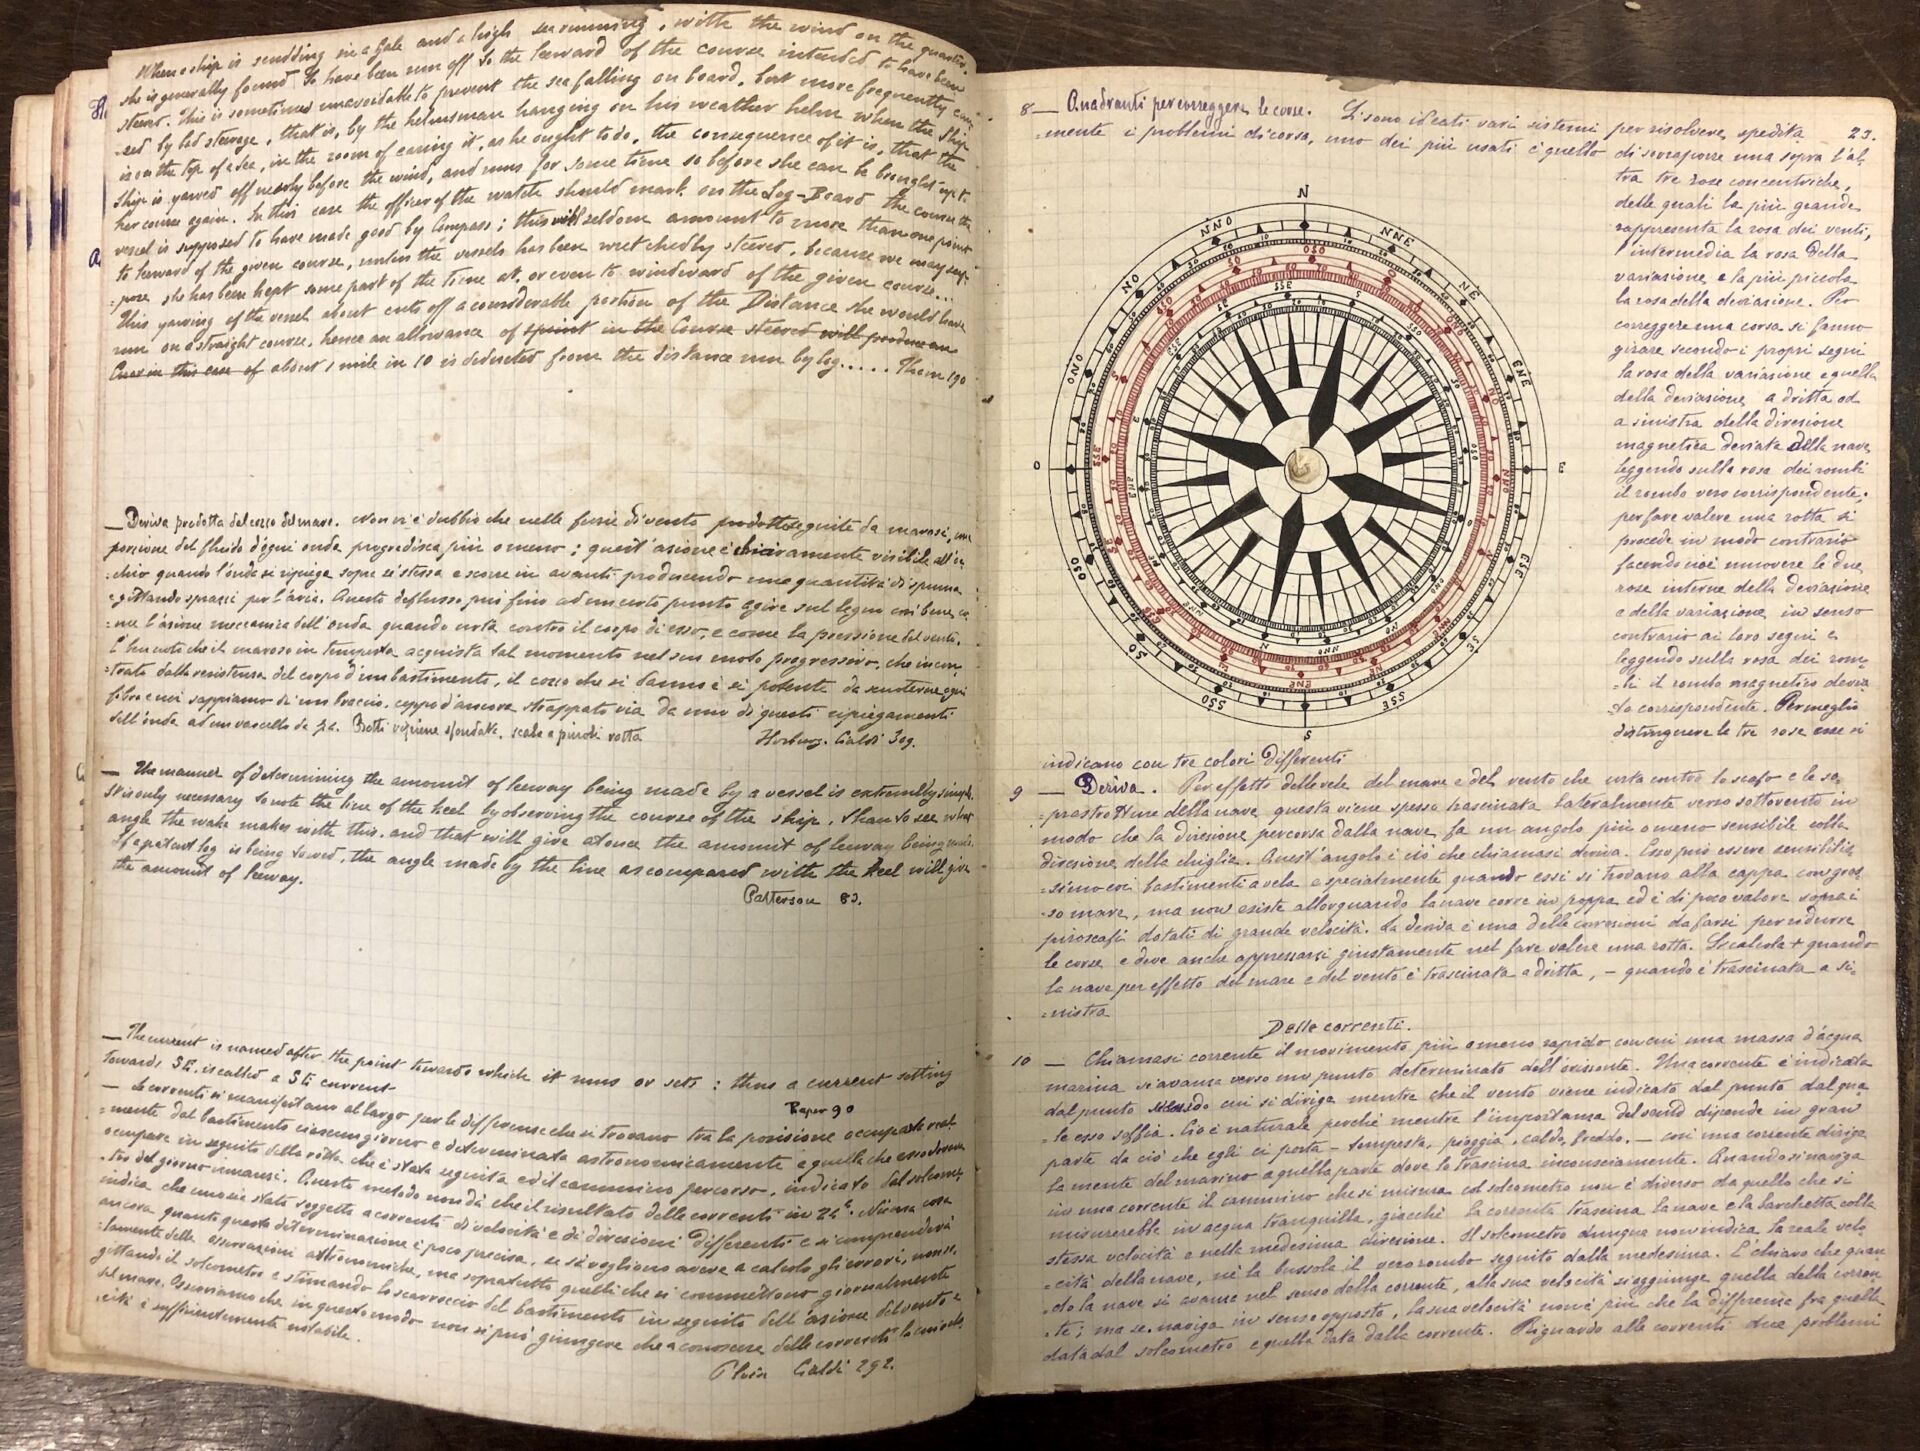 When a ship is scudding in a gale and a high sea running, with the wind on the quarter,
she is generally found to have been run off to the leeward of the course intended to have been
steered. This is sometimes unavoidable to prevent the sea falling on board, but more frequently cau-
sed by bad steerage, that is, by the helmsman hanging on his weather helm when the ship
is on the top of a sea, in the room of easing it, as he ought to do, the consequence of it is, that the
ship is yawed off nearly before the wind, and runs for some time so before she can be brought up to
her course again. In this case the officer of the watch should mark on the Log-Board the course the
vessel is supposed to have made good by Compass; this will seldom amount to more than one point
to leeward of the given course, unless the vessels has been wretchedly steered, because we may sup-
=pose she has been kept some part of the time at, or even to windward of the given course...
This yawing of the vessel about cuts off a considerable portion of the Distance she would have
run on a straight course, hence an allowance of point in the Course steered will produce an
in this case of about 1 mile in 10 is deducted from the distance run by log..... Them 190
— Deriva prodotta dal cozzo del mare. Non vi è dubbio che nelle furie di vento seguite da marosi, una
porzione del fluido d'ogni onda progredisca più o meno; quest'azione è chiaramente visibile all'oc-
=chio quando l'onda si ripiega sopra sé stessa e scorre in avanti producendo una quantità di spuma
e gittando sprazzi per l'aria. Questo deflusso può fino ad un certo punto agire sul legno così bene, co-
=me l'azione meccanica dell'onda quando urta contro il corpo di esso, e come la pressione del vento.
È ben noto che il maroso in tempesta acquista tal momento nel suo moto progressivo, che incon-
=trato dalla resistenza del corpo d'un bastimento, il cozzo che si danno è sì potente da scuoterne ogni
fibra e noi sappiamo di un braccio, ceppo d'ancora strappato via da uno di questi ripiegamenti
dell'onda ad un vascello da 74. Botti vepiene sfondate, scale a piroli rotte
Horburg. Cialdi 309.
— The manner of determining the amount of leeway being made by a vessel is extremely simple.
It is only necessary to note the line of the keel by observing the course of the ship, than to see what
angle the wake makes with this, and that will give at once the amount of leeway being made.
If a patent log is being towed, the angle made by the line as compared with the keel will give
the amount of leeway.
Patterson 83.
— The current is named after the point towards which it runs or sets: thus a current setting
towards SE. is called a SE current
Raper 90
— Le correnti si manifestano al largo per le differenze che si trovano tra la posizione occupata real-
=mente dal bastimento ciascun giorno e determinata astronomicamente e quella che esso dovrebbe
occupare in seguito della rotta che è stata seguita ed il cammino percorso, indicato dal solcome-
=tro del giorno innanzi. Questo metodo non dà che il risultato delle correnti in 24h. Niuna cosa
indica che uno sia stato soggetto a correnti di velocità e di direzioni differenti e si comprenderà
ancora quanto questa determinazione è poco precisa, se si vogliono avere a calcolo gli errori, non so-
=lamente delle osservazioni astronomiche, ma sopratutto quelli che si commettono giornalmente
gittando il solcometro e stimando lo scarroccio del bastimento in seguito dell'azione del vento e
del mare. Osserviamo che in questo modo non si può giungere che a conoscere delle correnti la cui velo-
cità è sufficientemente notabile.
Cialdi 292.
23.
8 — Quadranti per correggere le corse. Si sono ideati vari sistemi per risolvere spedita
=mente i problemi di corsa, uno dei più usati è quello di sovraporre una sopra l'al
tra tre rose concentriche,
delle quali la più grande
rappresenta la rosa dei venti,
l'intermedia la rosa della
variazione e la più piccola
la rosa della deviazione. Per
correggere una corsa si fanno
girare secondo i propri segni
la rosa della variazione e quella
della deviazione a dritta od
a sinistra della direzione
magnetica deviata della nave
leggendo sulla rosa dei rombi
il rombo vero corrispondente;
per fare valere una rotta si
procede in modo contrario
facendo cioè muovere le due
rose interne della deviazione
e della variazione in senso
contrario ai loro segni e
leggendo sulla rosa dei rom-
=bi il rombo magnetico devia
=to corrispondente. Per meglio
distinguere le tre rose esse si
indicano con tre colori differenti
N
NNE
NE
ENE
E
ESE
SE
SSE
S
SSO
SO
OSO
O
ONO
NO
NNO
9 — Deriva. Per effetto delle vele del mare e del vento che urta contro lo scafo e le so-
=prastrutture della nave questa viene spesso trascinata lateralmente verso sottovento in
modo che la direzione percorsa dalla nave fa un angolo più o meno sensibile colla
direzione della chiglia. Quest'angolo è ciò che chiamasi deriva. Esso può essere sensibilis
=simo coi bastimenti a vela e specialmente quando essi si trovano alla cappa con gros
=so mare, ma non esiste allorquando la nave corre in poppa ed è di poco valore sopra i
piroscafi dotati di grande velocità. La deriva è una delle correzioni da farsi per ridurre
le corse e deve anche apprezzarsi giustamente nel fare valere una rotta. Si calcola + quando
la nave per effetto del mare e del vento è trascinata a dritta, – quando è trascinata a si-
=nistra
Delle correnti.
10 — Chiamasi corrente il movimento più o meno rapido con cui una massa d'acqua
marina si avanza verso un punto determinato dell'orizzonte. Una corrente è indicata
dal punto verso cui si dirige mentre che il vento viene indicato dal punto dal qua
=le esso soffia. Ciò è naturale perchè mentre l'importanza del vento dipende in gran
parte da ciò che egli ci porta – tempesta, pioggia, caldo, freddo, – così una corrente dirige
la mente del marino a quella parte dove lo trascina inconsciamente. Quando si naviga
in una corrente il cammino che si misura col solcometro non è diverso da quello che si
misurerebbe in acqua tranquilla, giacchè la corrente trascina la nave e la barchetta colla
stessa velocità e nella medesima direzione. Il solcometro dunque non indica la reale velo
=cità della nave, nè la bussola il vero rombo seguito dalla medesima. È chiaro che quan
=do la nave si avanza nel senso della corrente, alla sua velocità si aggiunge quella della corren
=te; ma se naviga in senso opposto, la sua velocità non è più che la differenza fra quella
data dal solcometro e quella data dalla corrente. Riguardo alle correnti due problemi